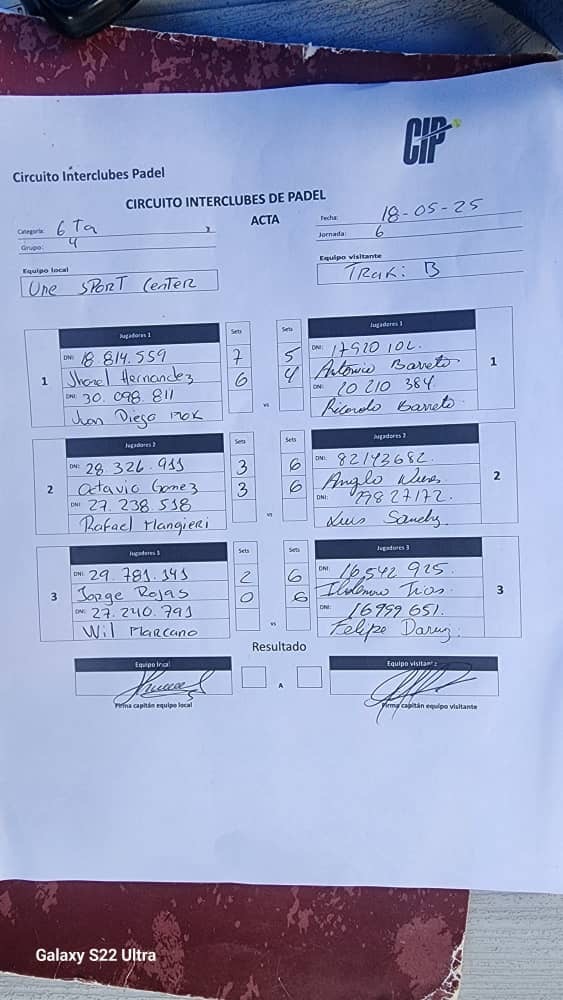 CIP
Circuito Interclubes Padel
CIRCUITO INTERCLUBES DE PADEL
ACTA
Categoria: 6 Ta
Fecha: 18-05-25
Grupo: 4
Jornada: 6
Equipo local
Equipo visitante
Une SPORT Center
TRAKi B
Jugadores 1 Sets Sets Jugadores 1
DNI: 18 814.559 7 5 DNI: 17920 102
1 Jhonel Hernandez 6 4 Antonio Barreto 1
DNI: 30. 098. 811 vs DNI: 20 210 384
Jhon Diego Ricardo Barreto
Jugadores 2 Sets Sets Jugadores 2
DNI: 28. 326. 911 3 6 DNI: 82143682.
2 Octavio Gomez 3 6 Anglo 2
DNI: 27. 238 518 vs DNI: 19827172.
Rafael Mangieri Luis
Jugadores 3 Sets Sets Jugadores 3
DNI: 29. 781. 141 2 6 DNI: 16542 925.
3 Jorge Rojas 0 6 3
DNI: 27. 240. 791 vs DNI: 16999 651.
Wil Marcano Felipe
Resultado
Equipo local A Equipo visitante
Firma capitán equipo local Firma capitán equipo visitante
Galaxy S22 Ultra